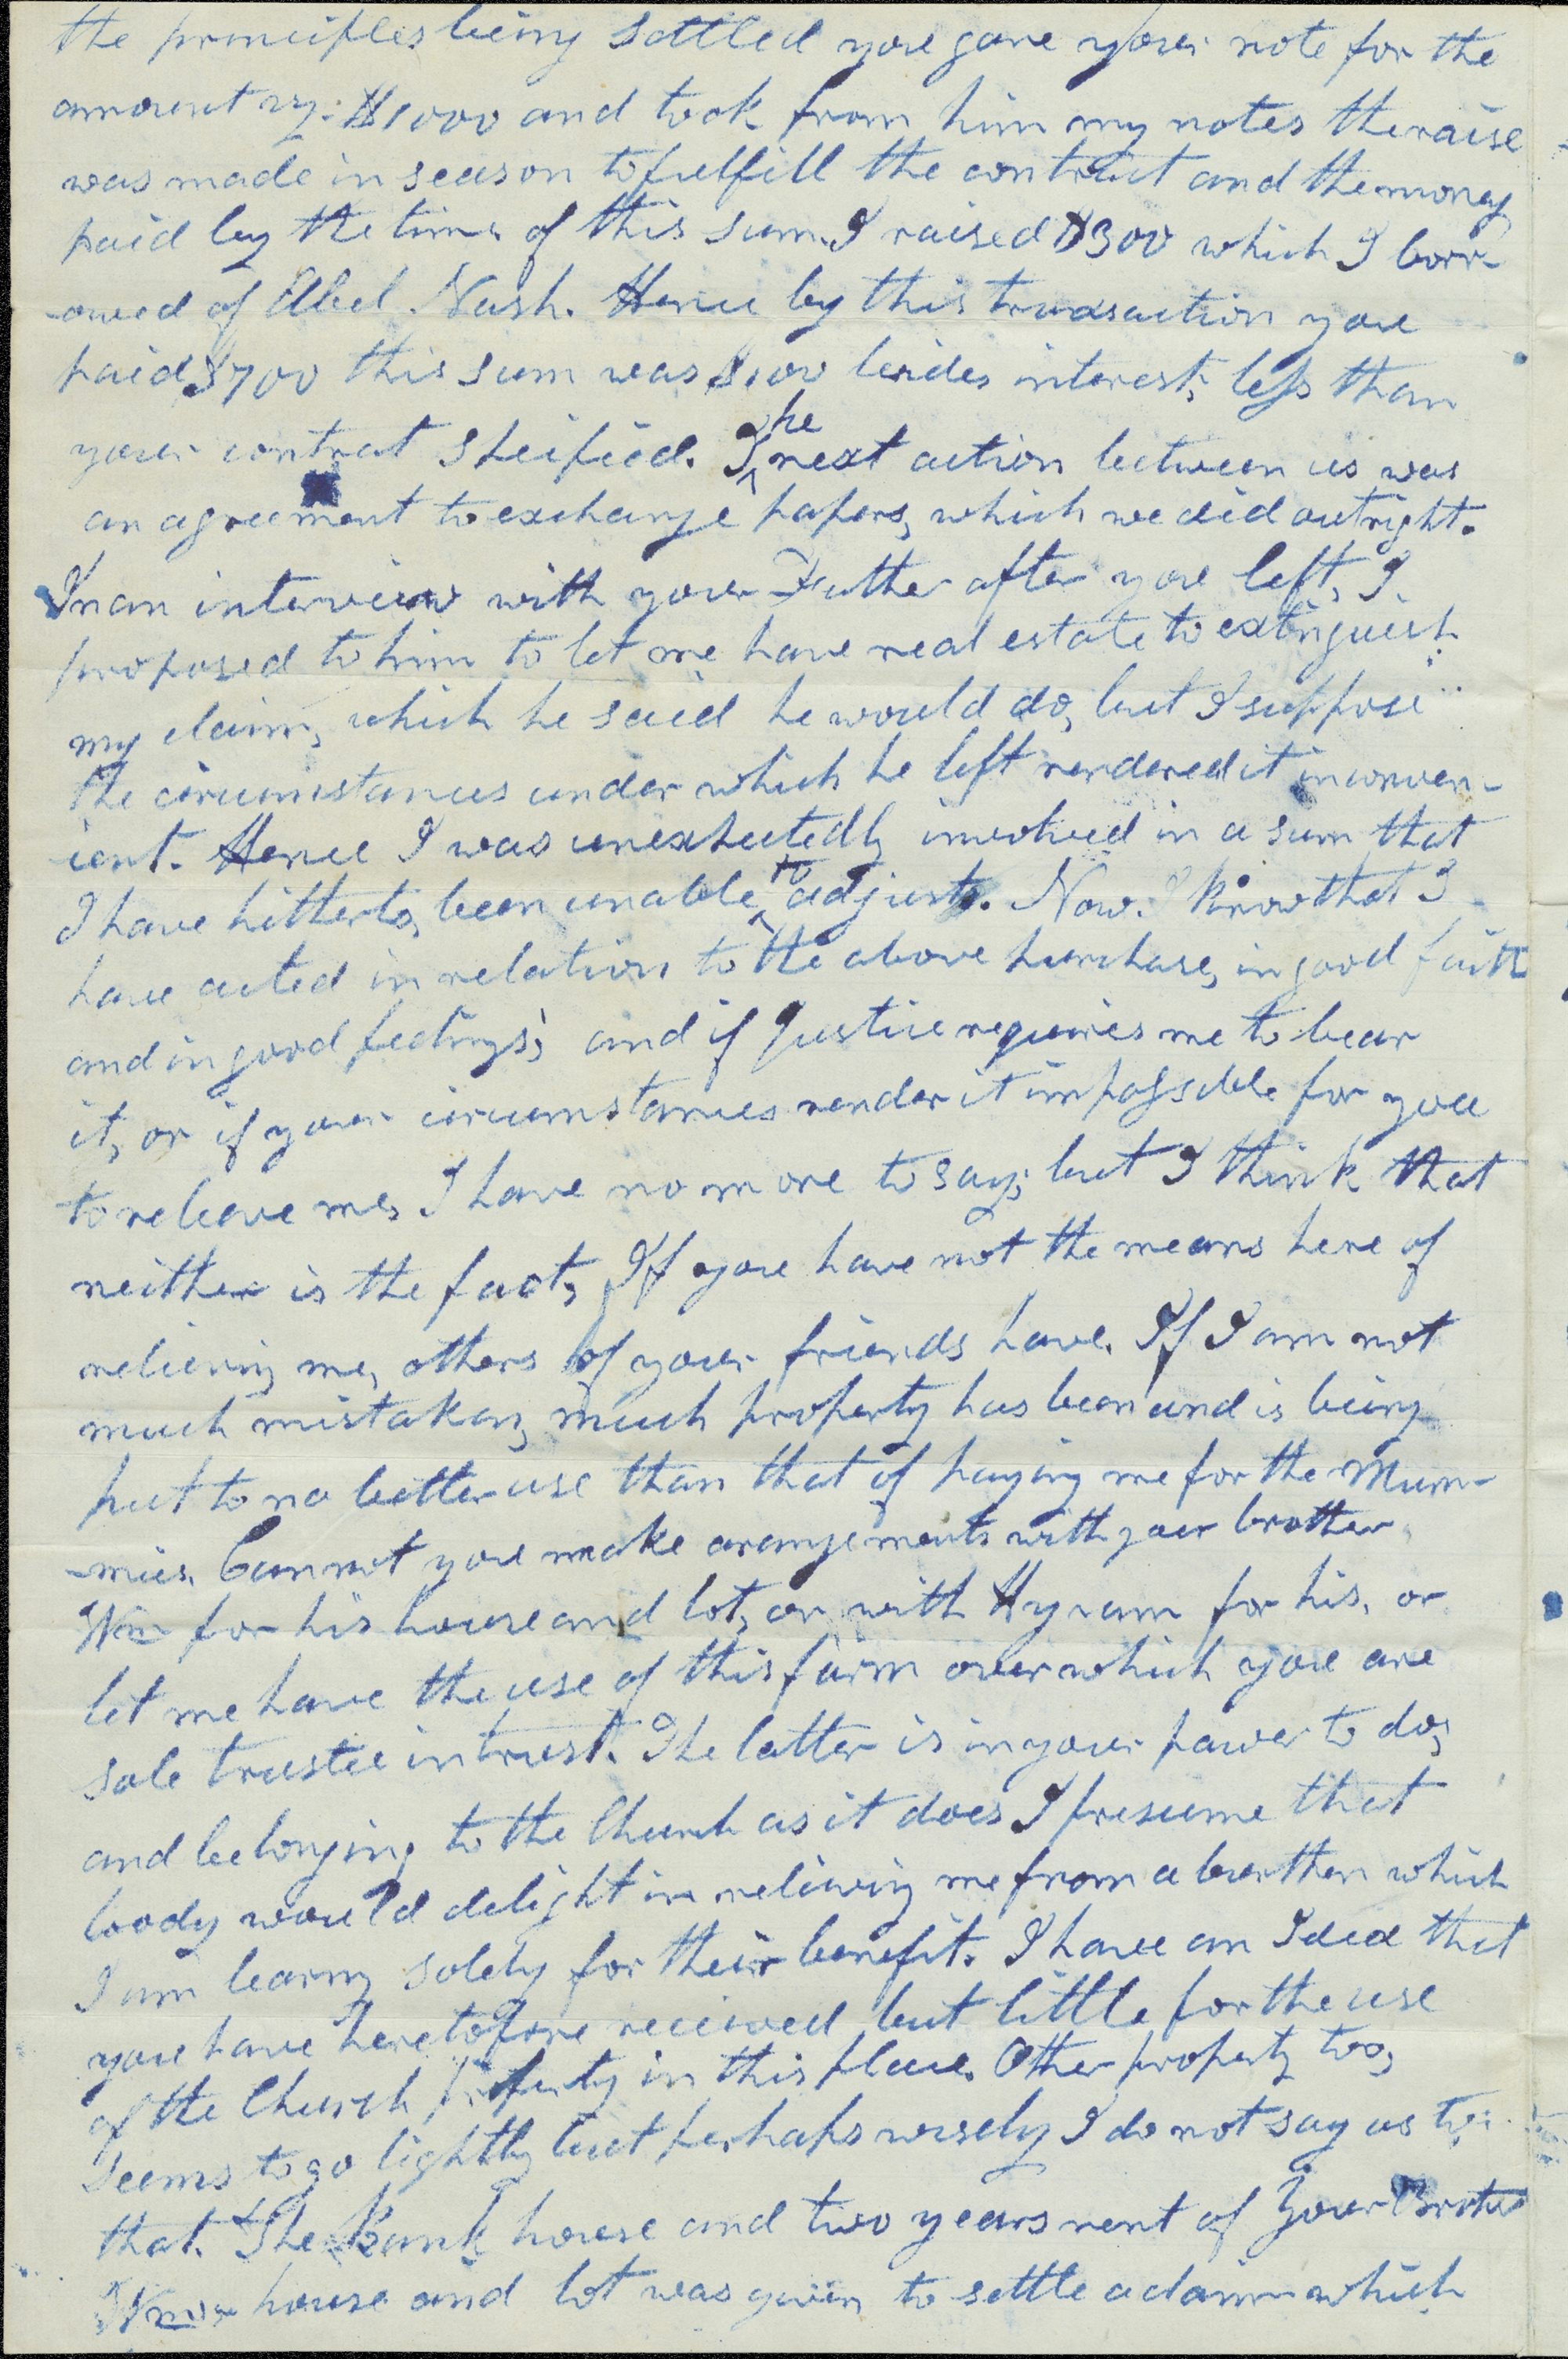 the principles being sattled you gave your note for the
amount vz: $1000 and took from him my notes the raise
was made in season to fulfill the contract and the money
paid by the time, of this sum. I raised $300 which I borr-
-owed of Abel. Nash. Hence by this transaction you
paid $700 this sum was $100 besides interest, less than
your contract speified. The next action between us was
an agreement to exchange papers, which we did outright.
In an interview with your Father after you left, I
proposed to him to let me have real estate to extinguish
my claim, which he said he would do, but I suppose
the circumstances under which he left rendered it inconven-
ient. Hence I was unexpectedly involved in a sum that
I have hitherto, been unable to adjust. Now. I know that I
have acted in relation to the above purchase, in good faith
and in good feelings; and if Justice requires me to bear
it, or if your circumstances render it impossible for you
to releave me, I have no more to say; but I think that
neither is the fact, If you have not the means here of
relieving me, others of your friends have. If I am not
much mistaken, much property has been and is being
put to no better use than that of paying me for the Mum-
-mies. Can not you make arangements with your brother
Wm for his house and lot, or with Hyram for his, or
let me have the use of this farm over which you are
sole trustee in trust. The latter is in your power to do,
and belonging to the Church as it does I presume that
body would delight in relieving me from a burthen which
I am bearing solely for their benefit. I have an Idea that
you have heretofore recieved but little for the use
of the Church property in this place. Other property too,
seems to go lightly but perhaps wisely I do not say as to
that. The Bank house and two years rent of Your Brother
Wms house and lot was given to settle a claim which